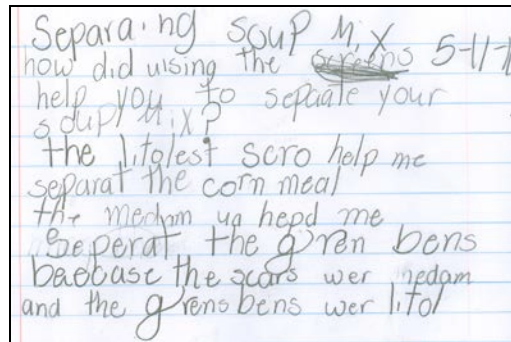 Separaing soup Mix
how did using the screens 5-11-1
help you to sepaate your
soup Mix?
the litolest scro help me
separat the corn meal
the medum help me
Seperat the gren bens
baecase the scars wer medam
and the grens bens wer litol